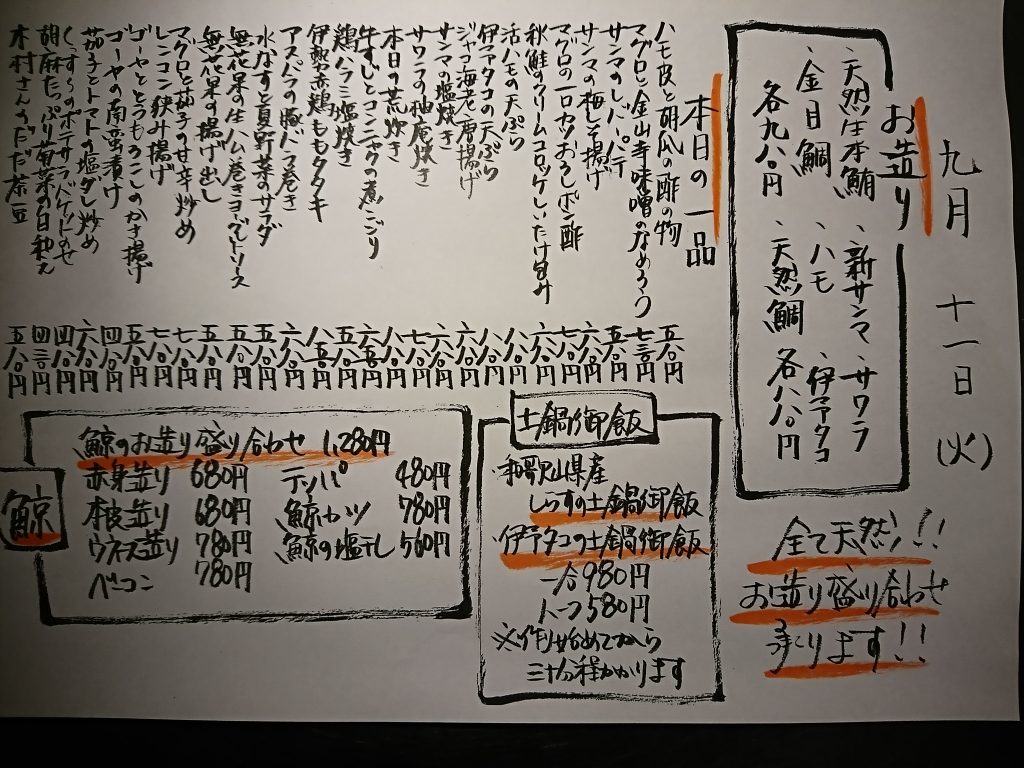 九月 十一日 (火)
お造り
、天然生本鮪 、新サンマ 、サワラ
、金目鯛 、ハモ 、伊予ダコ
各九八〇円 、天然鯛 各八八〇円
全て天然!!
お造り盛り合わせ
承ります!!
本日の一品
ハモ皮と胡瓜の酢の物 五八〇円
マグロと金山寺味噌のなめろう 七三〇円
サンマのレバーパテ 五八〇円
サンマの梅しそ揚げ 六八〇円
マグロの一口カツおろしポン酢 七八〇円
秋鮭のクリームコロッケしいたけ包み 六八〇円
活ハモの天ぷら 八八〇円
伊予ダコの天ぷら 八八〇円
ジャコ海老の唐揚げ 六八〇円
サンマの塩焼き 六八〇円
サワラの柚庵焼き 七八〇円
本日の荒炊き 五八〇円
牛すじとコンニャクの煮こごり 六五〇円
鶏ハラミ塩焼き 五八〇円
伊勢赤鶏ももタタキ 八五〇円
アスパラの豚バラ巻き 六八〇円
水なすと夏野菜のサラダ 五八〇円
無花果の生ハム巻きヨーグルトソース 五八〇円
無花果の揚げ出し 五八〇円
マグロと茄子の甘辛炒め 七八〇円
レンコン挟み揚げ 七八〇円
ゴーヤととうもろこしのかき揚げ 五八〇円
ゴーヤの南蛮漬け 四八〇円
茄子とトマトの塩ダレ炒め 六八〇円
ポテサラバゲットのせ 四八〇円
胡麻たっぷり菊菜の白和え 四三〇円
木村さんのだだ茶豆 五八〇円
土鍋御飯
和歌山県産
しらすの土鍋御飯
伊予タコの土鍋御飯
一合980円
ハーフ580円
※作り始めてから
三十分程かかります
鯨
鯨のお造り盛り合わせ 1,280円
赤身造り 680円 テッパ 480円
本皮造り 680円 鯨カツ 780円
ウネス造り 780円 鯨の塩干し 560円
ベーコン 780円